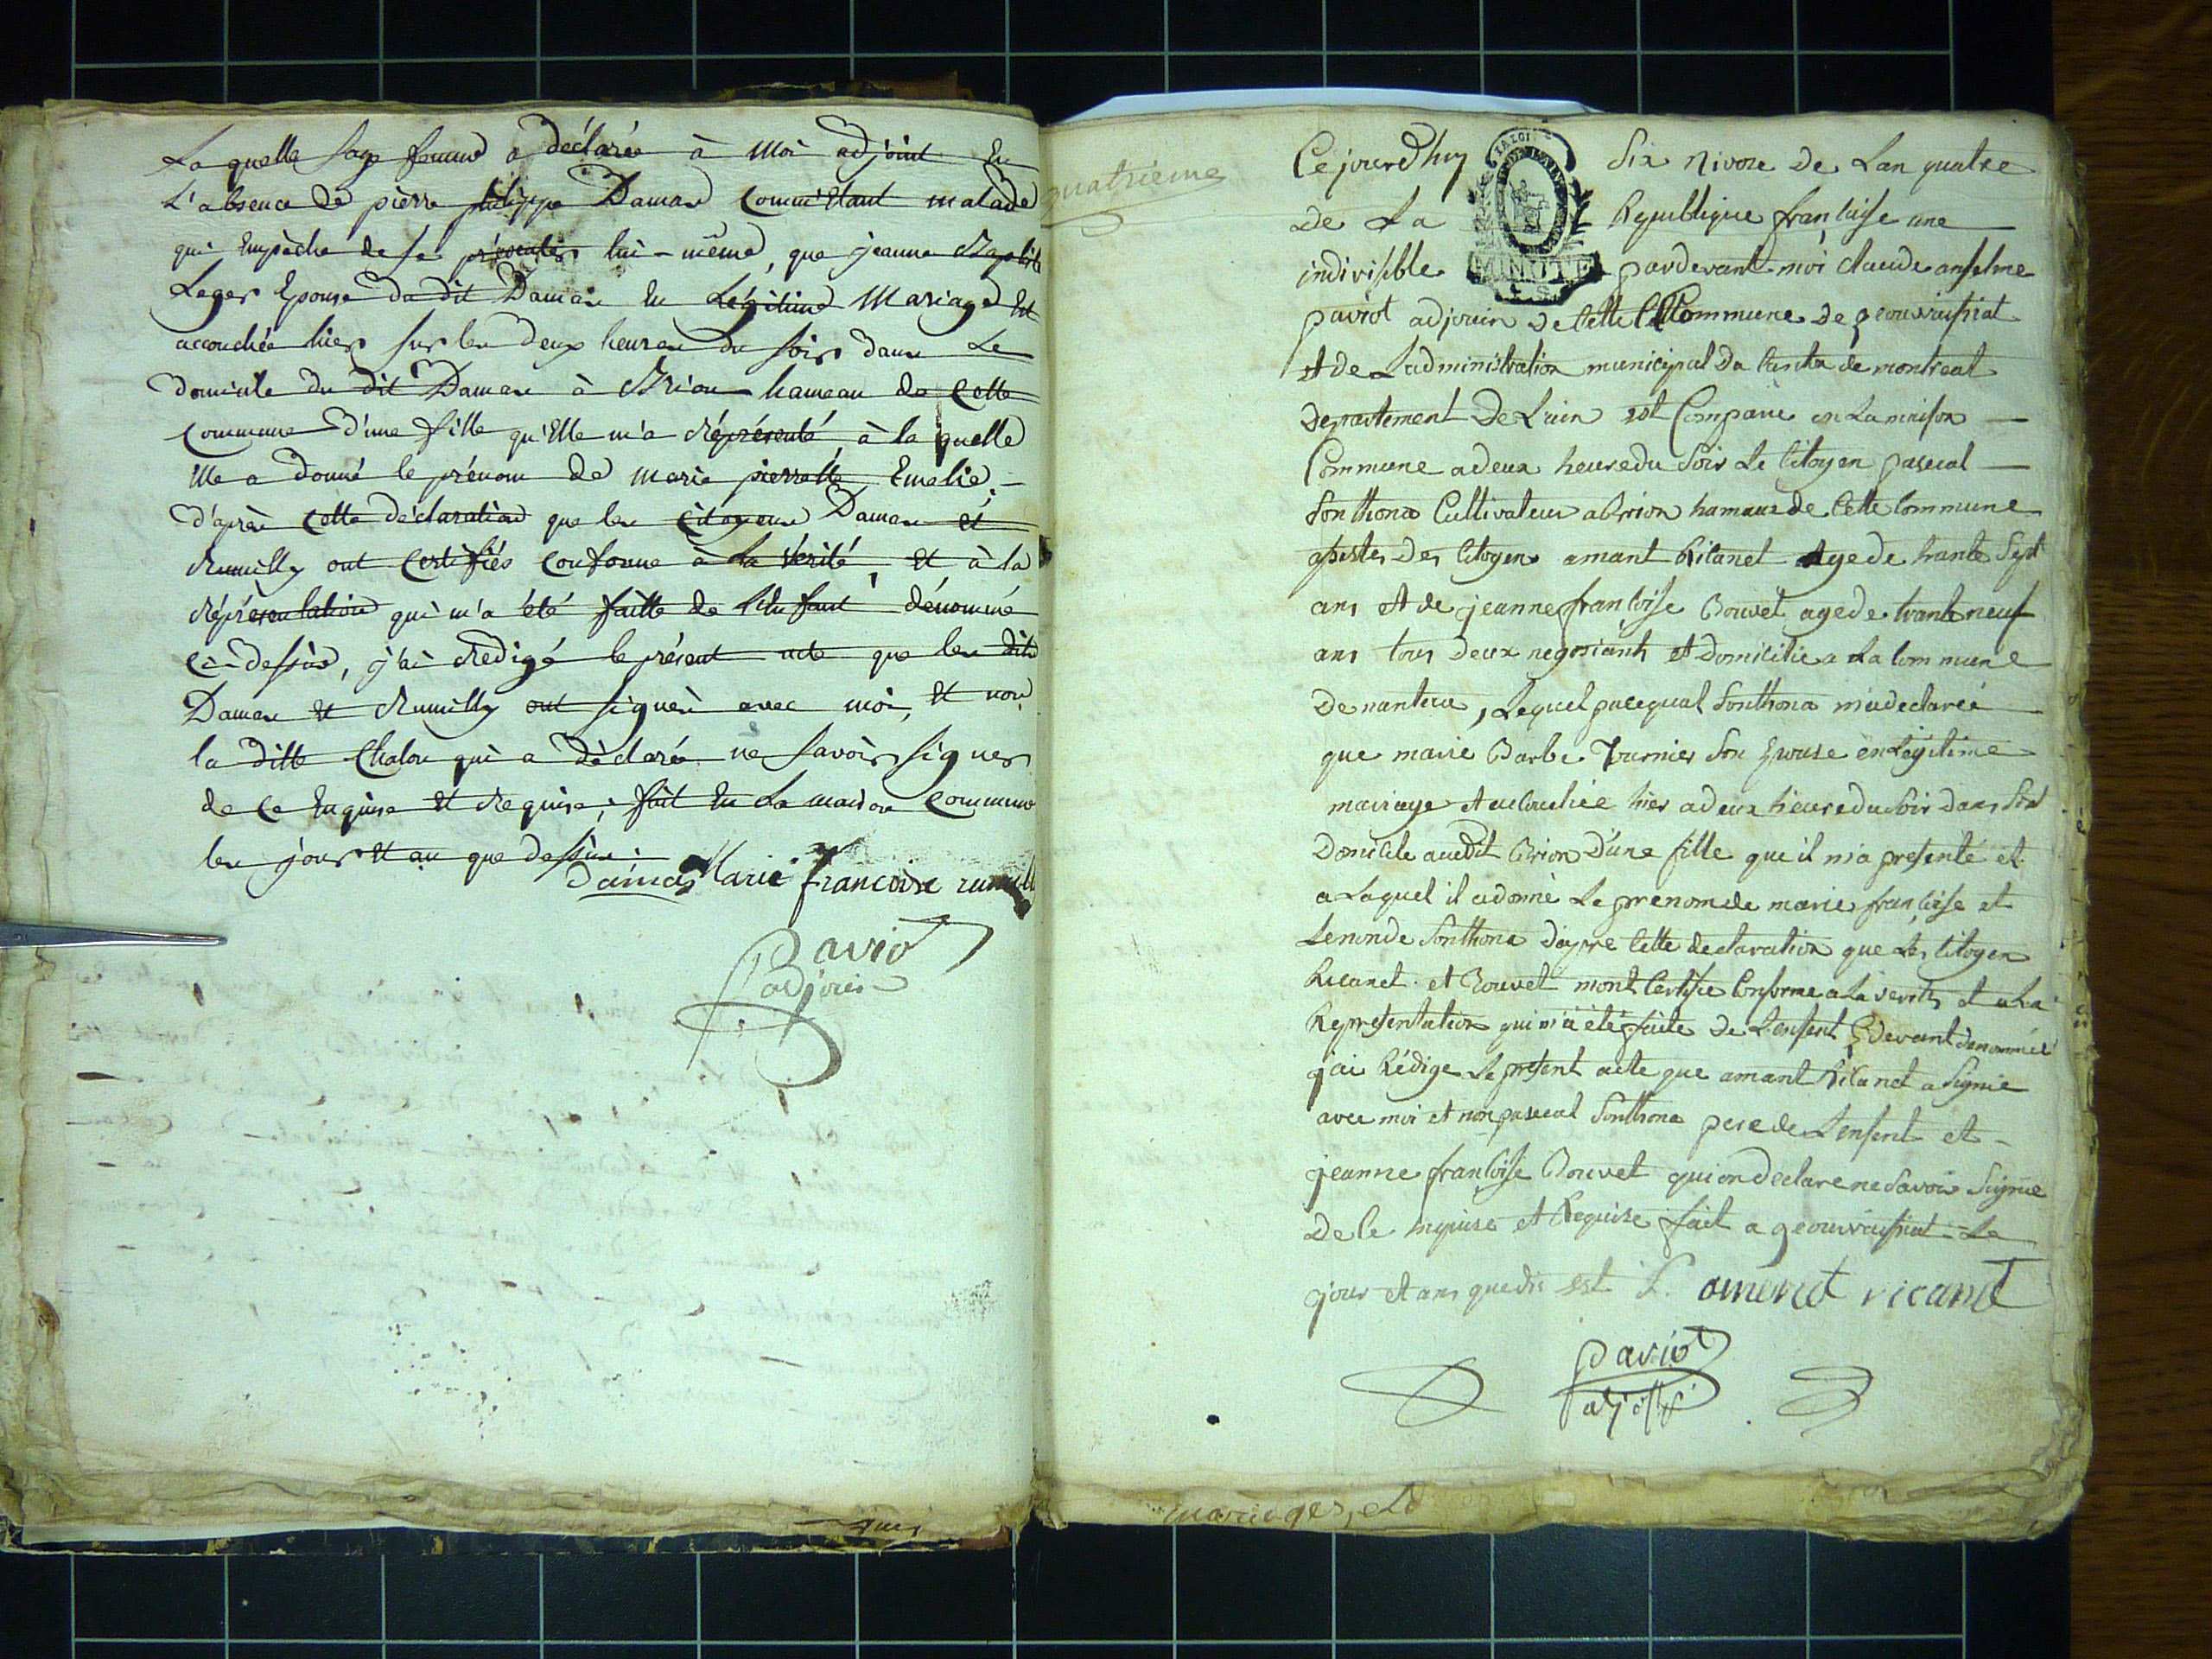 La quelle sage femme a déclaré à moi adjoint En
L'absence de pierre philippe Damas comm'Etant malade
qui Empêche de se présenter lui-même, que jeanne Baptiste
Leger Epouse du dit Damas En Légitime Mariage Et
accouchée hier sur les deux heures du soir dans Le
domicile du dit Damas à Brion hameau de Cette
Commune d'une fille qu'Elle m'a réprésenté, à la quelle
Elle a donné le prénom de marie pierrette Emelie,
d'après Cette déclaration que les Citoyens Damas et
Rumilly ont Certifiés Conforme à La Vérité, Et à la
réprésentation qui m'a été faitte de l'Enfant dénommé
Ci-dessùs, j'ai Redigé le présent acte que les dits
Damas Et Rumilly ont signés avec moi, Et non
la ditte Chalon qui a déclaré ne savoir signer
de Ce Enquise Et Requise, fait En La maison Commune
les jour Et an que dessùs.
Damas Marie francoise rumill
Paviot
adjoin
quatrieme
Cejourdhuy six Nivose De Lan quatre
De La Republique francaise une
indivisible pardevant moi claude anselme
MINUTE
paviot adjouin De Cette Commune De geouvraissiat
et de Ladministration municipal Du Canton de montreal
departement De L'ain est Comparu en La maison
Commune a deux heure du Soir Le Citoyen pascal
Sonthona Cultivateur a Brion hamaux de Cette Commune
asistes Des Citoyens amant Ricanet Age de trante Sept
ans et de jeanne francoise Bouvet age de trante neuf
ans tous Deux negosiants et Domicilie a La Commune
De nantua, Lequel pasqual Sonthona m'a declaré
que marie Barbe Tournier Son Epouse en Légitime
mariage et acouchée hier a deux heure du Soir dans son
Domicile audit Brion D'une fille que il m'a presenté et
a Laquel il a donné Le prenom de marie francoise et
Le nom de Sonthona d'apre Cette declaration que Les Citoyen
Ricanet et Bouvet mont Certifie Conforme a La verité et a La
Representation qui m'a été faite De L'enfent Cy devant denommée
j'ai Rédige Le présent acte que amant Ricanet a Signie
avec moi et non pascal Sonthona pere de L'enfent et
jeanne francoise Bouvet qui on declare ne Savoir Signie
De Ce enquise et Requise fait a geouvraissiat Le
jour et ans que dis est amend ricanet
Paviot
adj
mariages,